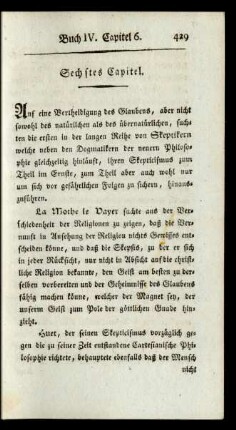 Buch IV. Capitel 6. 429
Sechstes Capitel.
Auf eine Vertheidigung des Glaubens, aber nicht
sowohl des natürlichen als des übernatürlichen, such-
ten die ersten in der langen Reihe von Skeptikern
welche neben den Dogmatikern der neuern Philoso-
phie gleichzeitig hinläuft, ihren Skepticismus zum
Theil im Ernste, zum Theil aber auch wohl nur
um sich vor gefährlichen Folgen zu sichern, hinaus-
zuführen.
La Mothe le Vayer suchte aus der Ver-
schiedenheit der Religionen zu zeigen, daß die Ver-
nunft in Ansehung der Religion nichts Gewisses ent-
scheiden könne, und daß die Skepsis, zu der er sich
in jeder Rücksicht, nur nicht in Absicht auf die christ-
liche Religion bekannte, den Geist am besten zu der-
selben vorbereiten und der Geheimnisse des Glaubens
fähig machen könne, welcher der Magnet sey, der
unserm Geist zum Pole der göttlichen Gnade hin-
zieht.
Huet, der seinen Skepticismus vorzüglich ge-
gen die zu seiner Zeit entstandene Cartesianische Phi-
losophie richtete, behauptete ebenfalls daß der Mensch
nicht